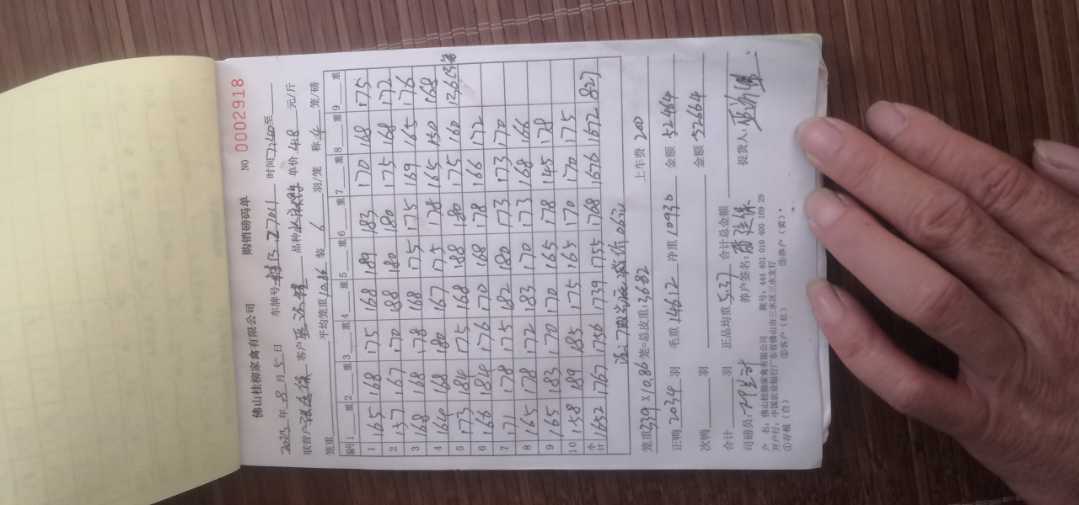 佛山桂柳家禽有限公司 购销磅码单 NO 0002918
2025 年 8 月 5 日 车牌号 27011 时间
联营户 客户 品种 单价 4.18 元/斤
笼重 平均笼重 10.86 装 6 羽/笼 称 4 笼/磅
编号 1 重 2 重 3 重 4 重 5 重 6 重 7 重 8 重 9 重
1 165 168 175 168 189 183 170 168 175
2 157 167 170 188 180 180 175 168 172
3 168 168 178 168 175 175 169 165 176
4 164 168 180 167 175 178 165 150 168
5 173 184 175 168 188 180 175 160 136
6 166 184 176 170 168 178 166 172
7 171 178 175 182 180 173 173 170
8 165 178 172 183 170 173 168 166
9 165 183 170 170 165 178 145 178
10 158 189 185 175 165 170 170 175
小计 1652 1767 1756 1739 1755 1768 1676 1672 827
笼重 339 × 10.86 笼=总皮重 3682 上车费 200
正鸭 2034 羽 毛重 14612 净重 10930 金额 52464
次鸭 羽 金额 52664
合计 羽 正品均重 5.37 合计总金额
司磅员: 养户签名: 提货人:
户 名: 佛山桂柳家禽有限公司 账号: 444 401 010 400 109 29
开户行: 中国农业银行广东省佛山市三水区三水支行
①存根(白) ②客户(红) ③养户(黄)